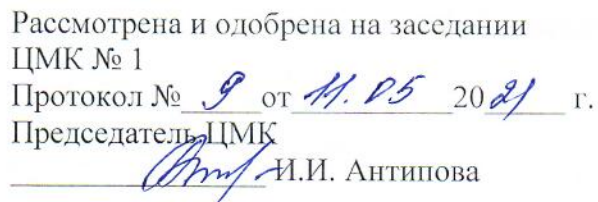 Рассмотрена и одобрена на заседании
ЦМК № 1
Протокол № 9 от 11.05 2021 г.
Председатель ЦМК
И.И. Антипова